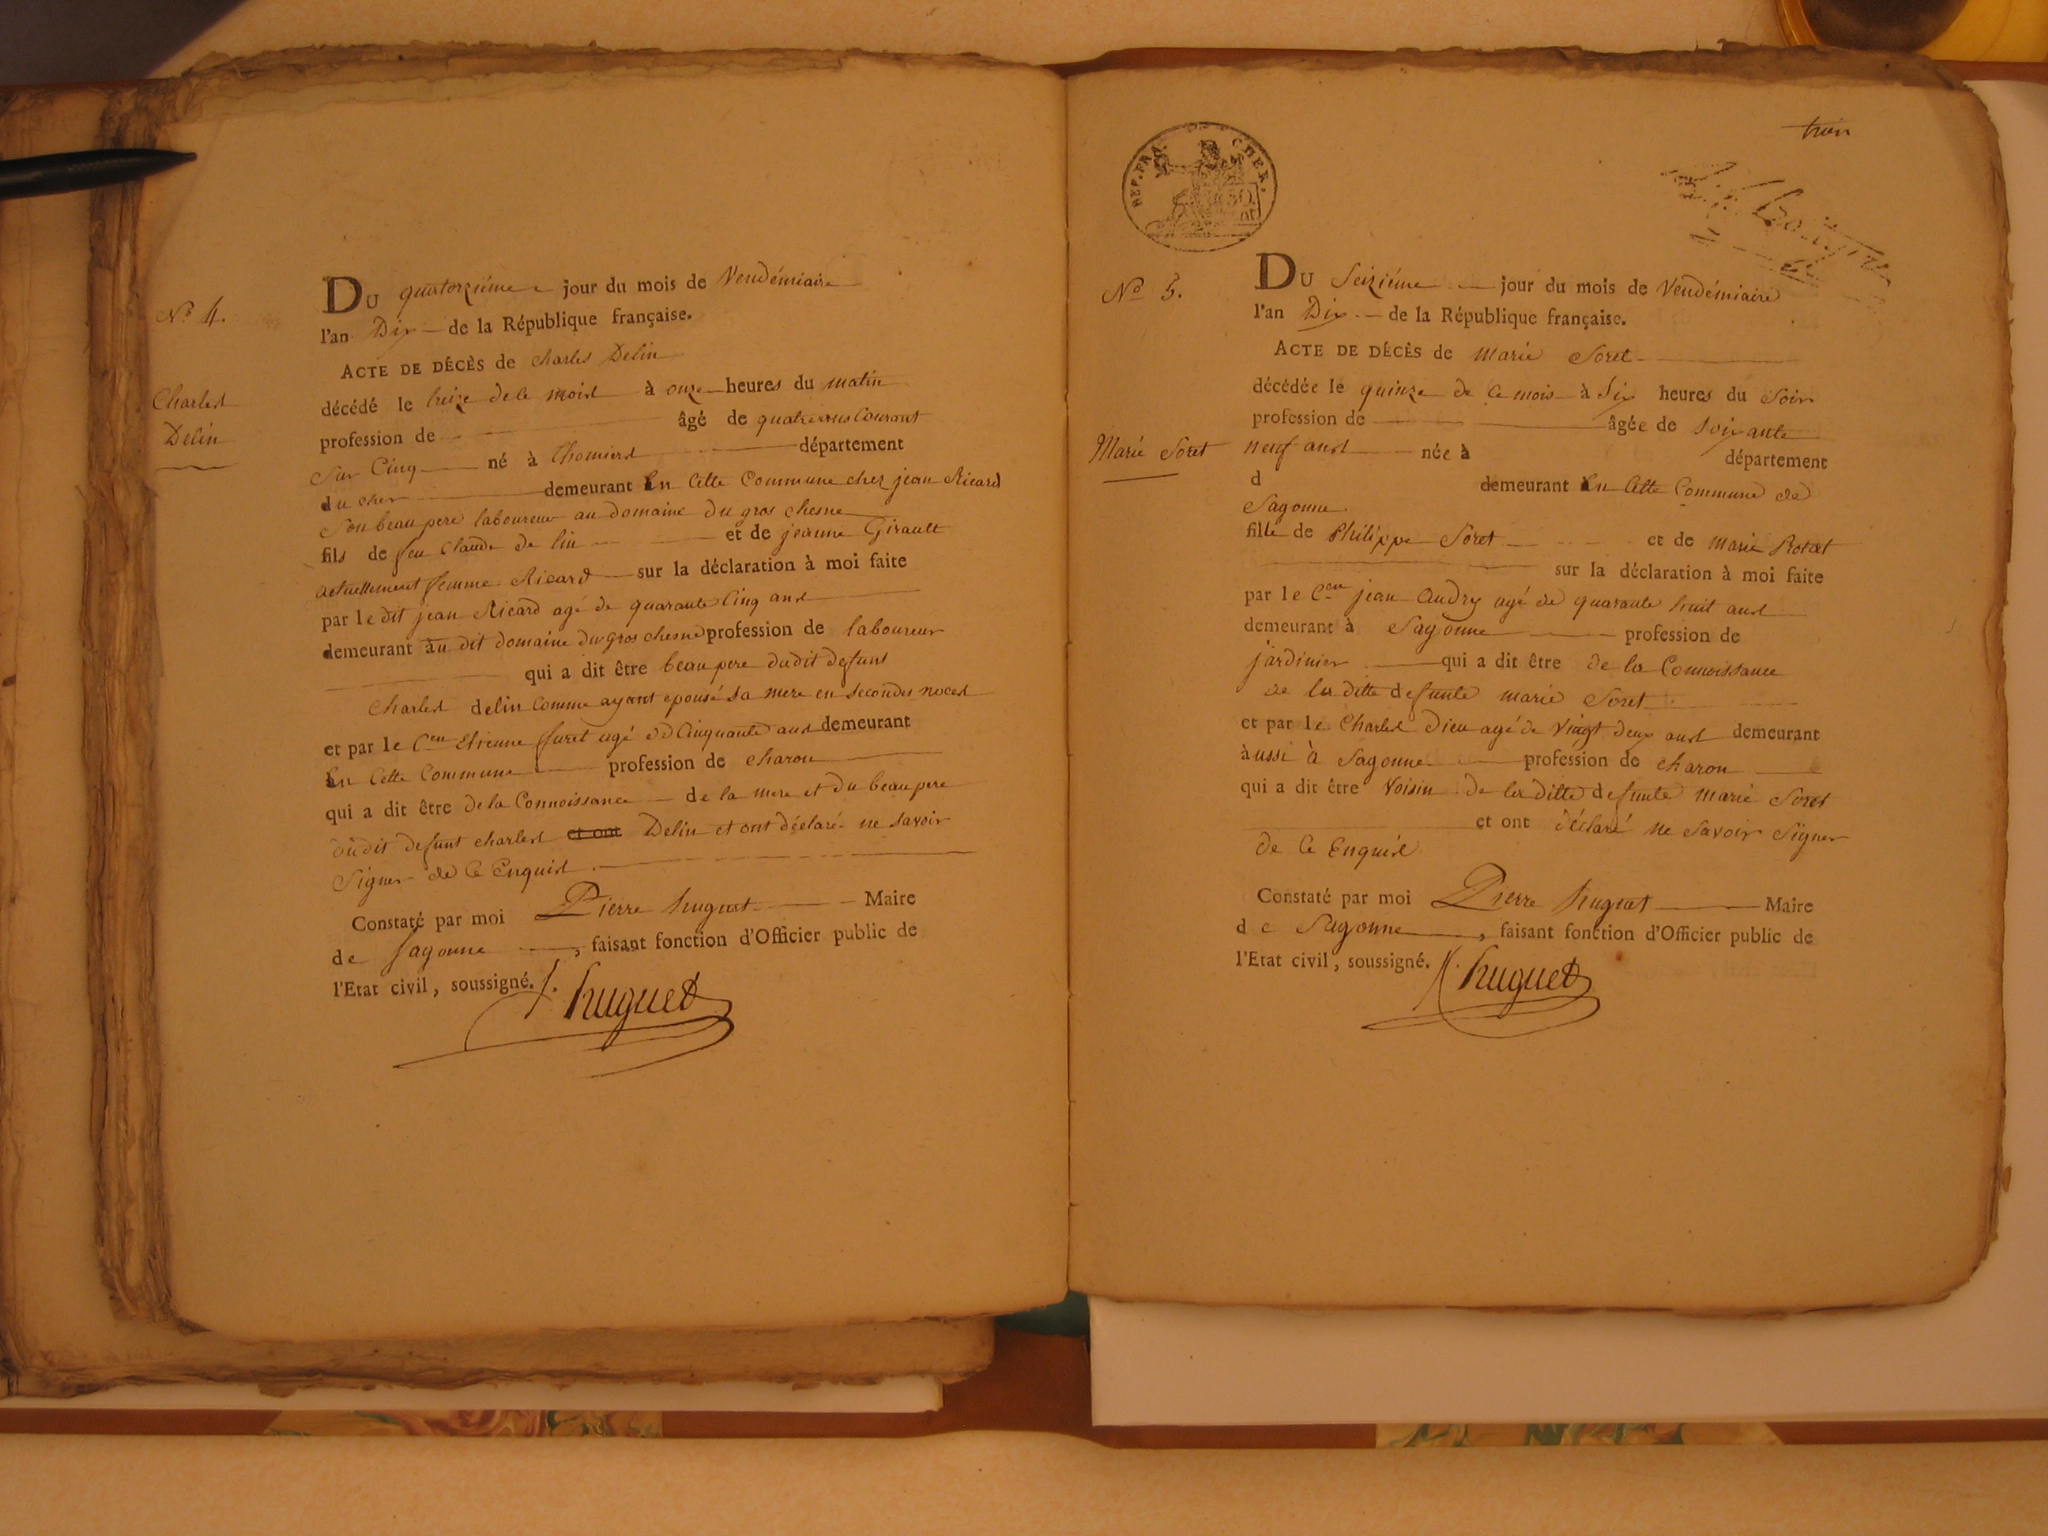 N.º 4.
Charles
Delin
DU quatorziéme jour du mois de Vendémiaire
l'an Dix de la République française.
ACTE DE DÉCÈS de charles Delin
décédé le treize de ce mois à onze heures du matin
profession de âgé de quatre ans Courant
Sur Cinq né à Thomiers département
du cher demeurant En Cette Commune chez jean Ricard
Son beau pere laboureur au domaine du gros chesne
fils de feu Claude de lin et de jeanne Girault
actuellement femme Ricard sur la déclaration à moi faite
par le dit jean Ricard agé de quarante Cinq ans
demeurant au dit domaine du gros chesne profession de laboureur
qui a dit être beau pere dudit defunt
Charles delin Comme ayant epousé sa mere en secondes noces
et par le Cen Etienne furet agé de Cinquante ans demeurant
En Cette Commune profession de charon
qui a dit être de la Connoissance de la mere et du beau pere
dudit defunt charles et ont Delin et ont déclaré ne savoir
Signer de Ce Enquis
Constaté par moi Pierre huguet Maire
de Sagonne, faisant fonction d'Officier public de
l'Etat civil, soussigné. huguet
REP. FRA. CHER.
N.º 5.
Marie Soret
DU Seiziéme jour du mois de Vendémiaire
l'an Dix de la République française.
ACTE DE DÉCÈS de marie Soret
décédée le quinze de Ce mois à Six heures du Soir
profession de âgée de Soixante
neuf ans née à département
d demeurant En Cette Commune de
Sagonne
fille de Philippe Soret et de marie Rotat
sur la déclaration à moi faite
par le Cen jean Audry agé de quarante huit ans
demeurant à Sagonne profession de
jardinier qui a dit être de la Connoissance
de la ditte defunte marie Soret
et par le Charles Dieu agé de Vingt deux ans demeurant
aussi à Sagonne profession de charon
qui a dit être Voisin de la ditte defunte marie Soret
et ont déclaré ne Savoir Signer
de Ce Enquis
Constaté par moi Pierre huguet Maire
de Sagonne, faisant fonction d'Officier public de
l'Etat civil, soussigné. huguet